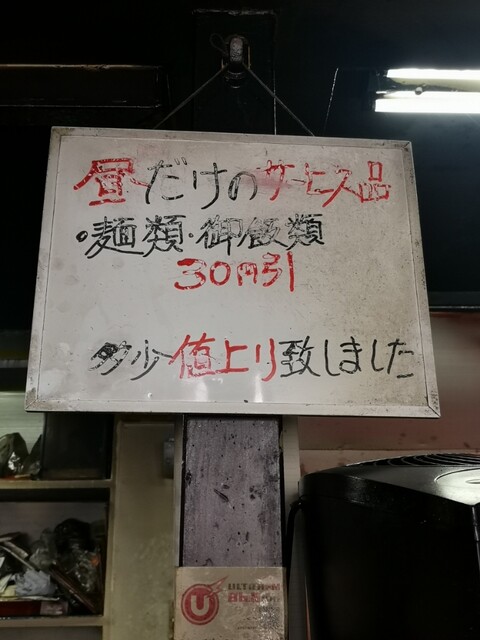 昼だけのサービス品
・麺類・御飯類
30円引
多少値上り致しました
U
ULTRA FM